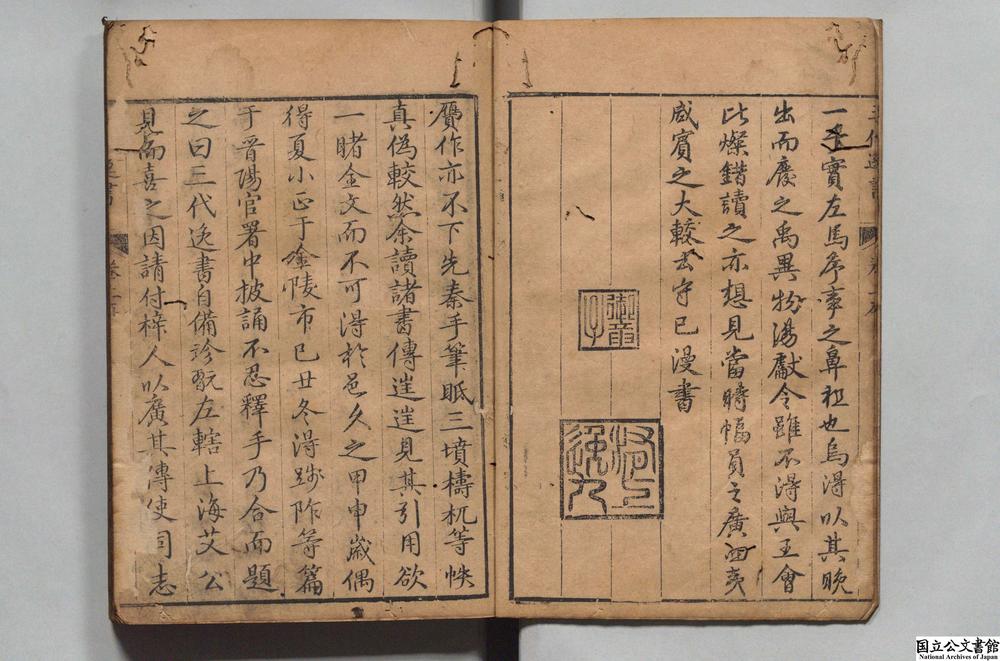 一書實左馬序事之鼻祖也烏得以其晚
出而廢之禹異物湯獻令雖不得與王會
比燦錯讀之亦想見當時幅員之廣四夷
咸賓之大較云守已漫書
贗作亦不下先秦手筆眡三墳檮杌等帙
真偽較然余讀諸書傳逞逞見其引用欲
一睹金文而不可得於邑久之甲申歲偶
得夏小正于金陵市已丑冬得踐阼等篇
于晋陽官署中披誦不忍釋手乃合而題
之曰三代逸書自備珍翫左轄上海艾公
見而喜之因請付梓人以廣其傳使同志
国立公文書館
National Archives of Japan